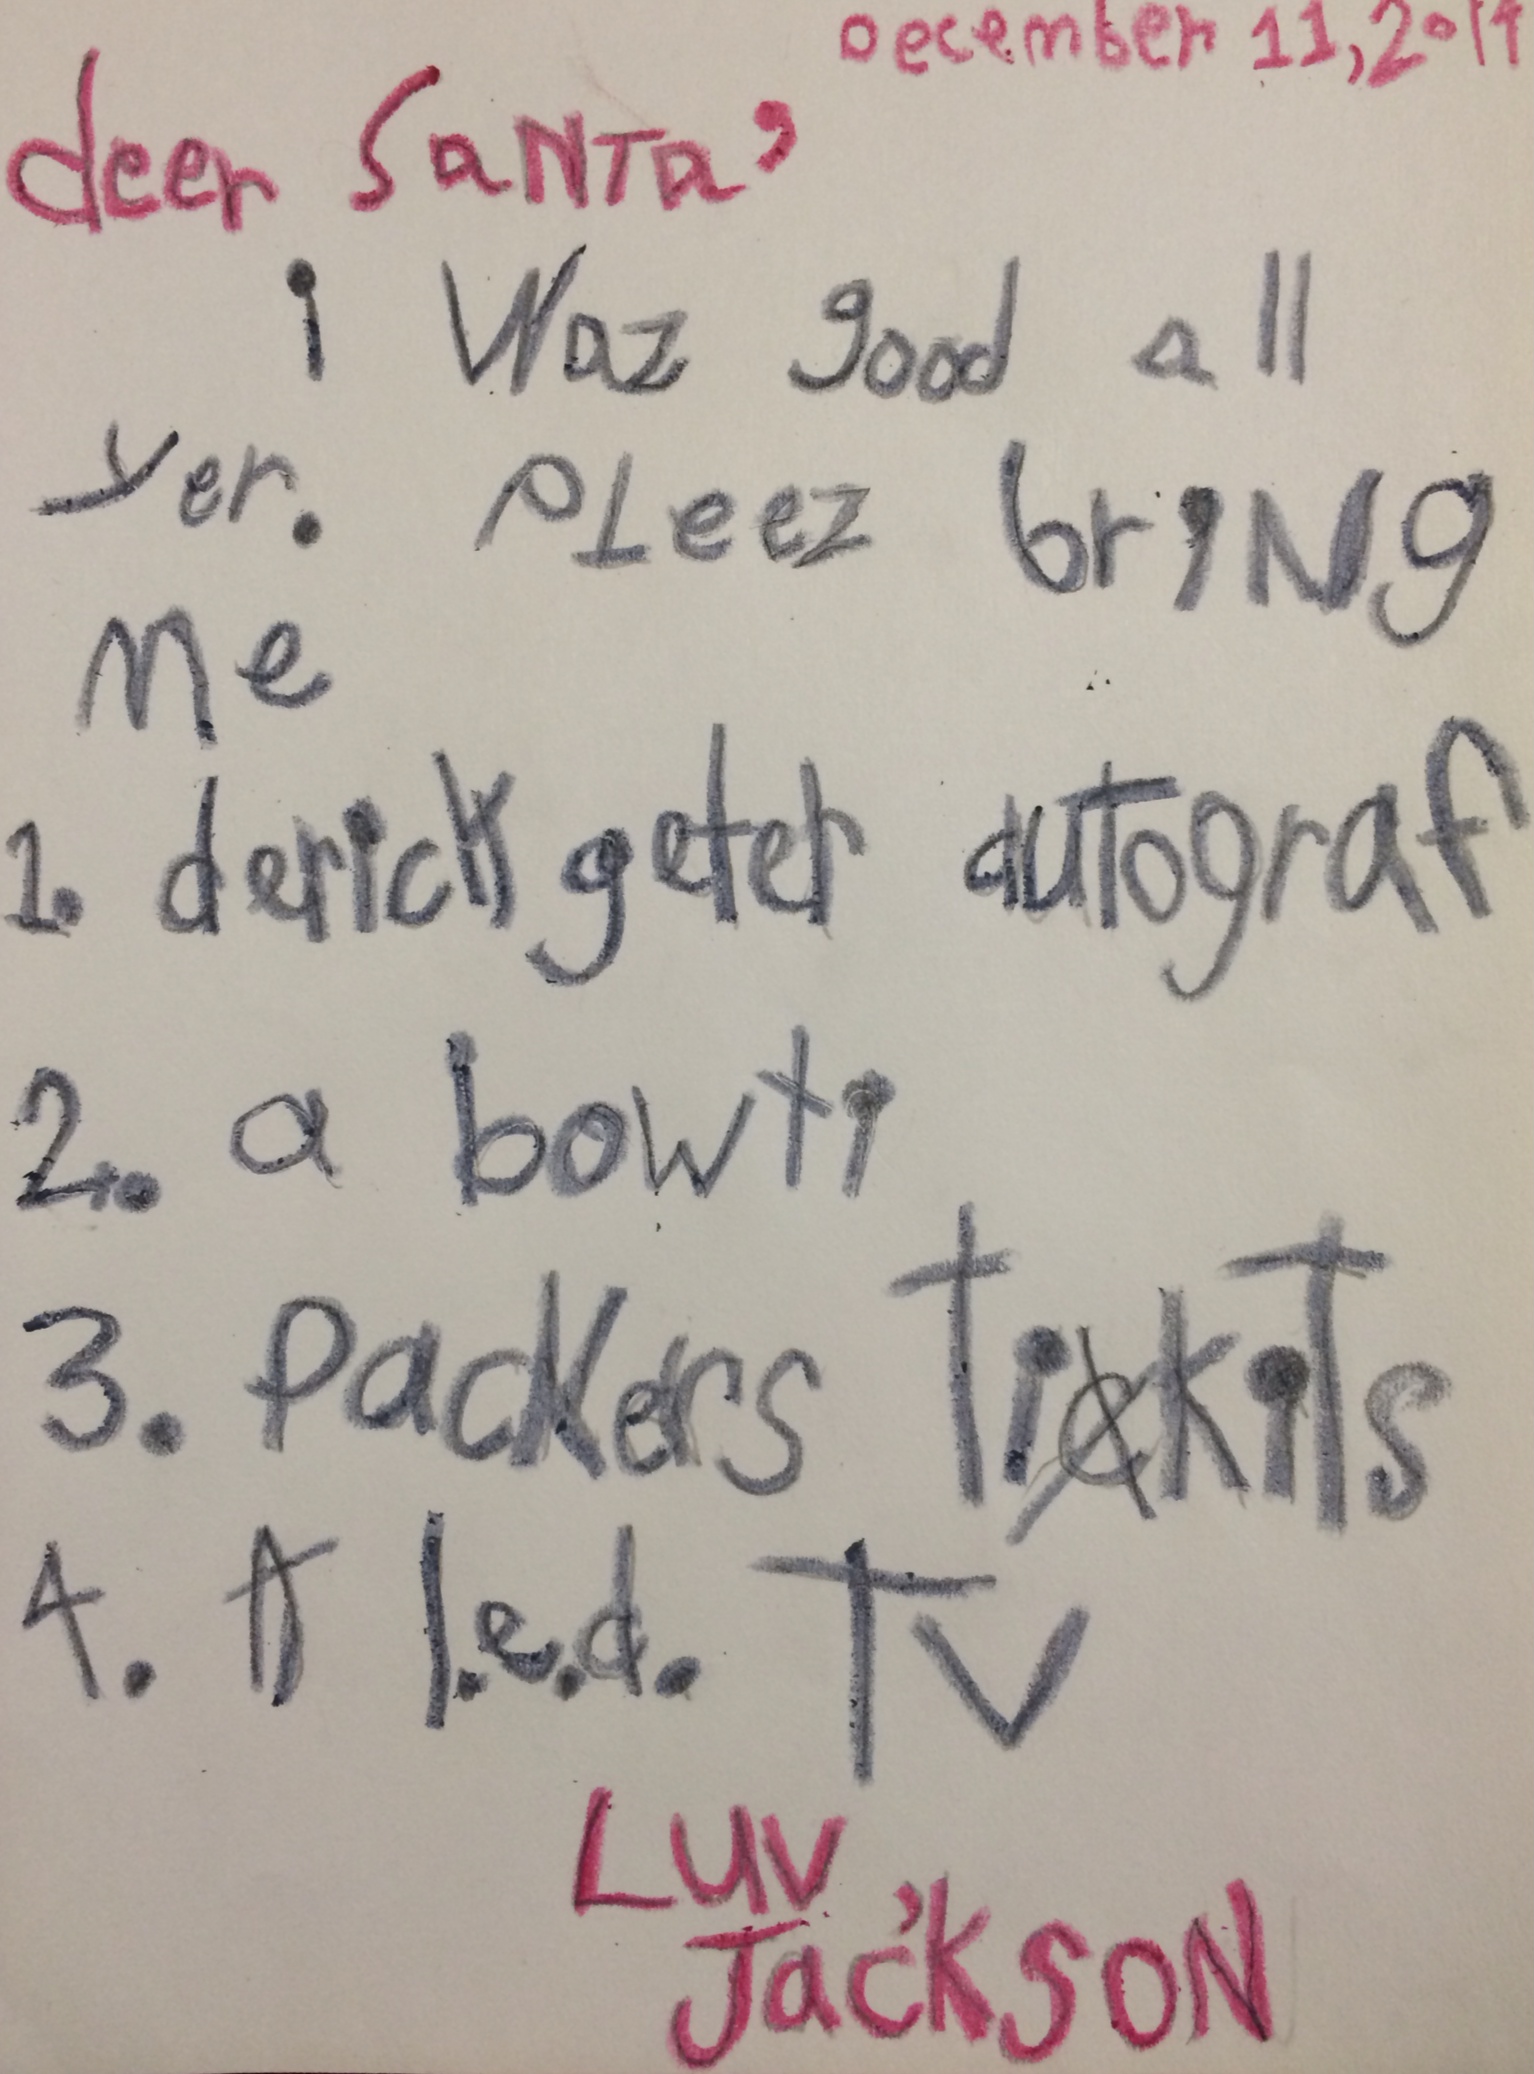 December 11, 2014
deer SaNTa,
i Waz good all
yer. PLeez briNg
me
1. derick geter autograf
2. a bowti
3. Packers TickiTs
4. A l.e.d. TV
Luv,
JacksoN